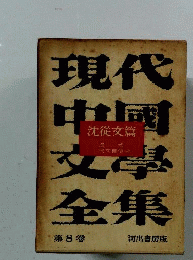 現代
中國
文學
全集
沈從文篇
第8卷
河出書房版